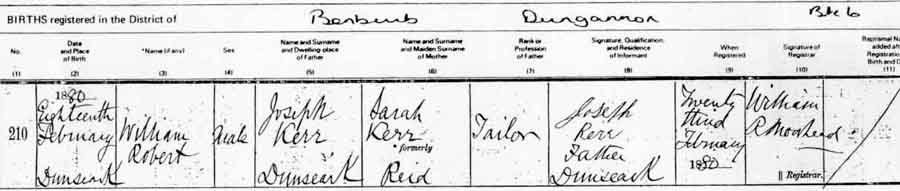 BIRTHS registered in the District of Benburb Dungannon Bk 6
No. Date and Place of Birth *Name (if any) Sex Name and Surname and Dwelling-place of Father Name and Surname and Maiden Surname of Mother Rank or Profession of Father Signature, Qualification and Residence of Informant When Registered Signature of Registrar Baptismal Na added after Registration Birth and D
(1) (2) (3) (4) (5) (6) (7) (8) (9) (10) (11)
210
1880
Eighteenth
February
Dunseark
William
Robert
Male
Joseph
Kerr
Dunseark
Sarah
Kerr
* formerly
Reid
Tailor
Joseph
Kerr
Father
Dunseark
Twenty
third
February
1880
William
R Moorhead
|| Registrar.